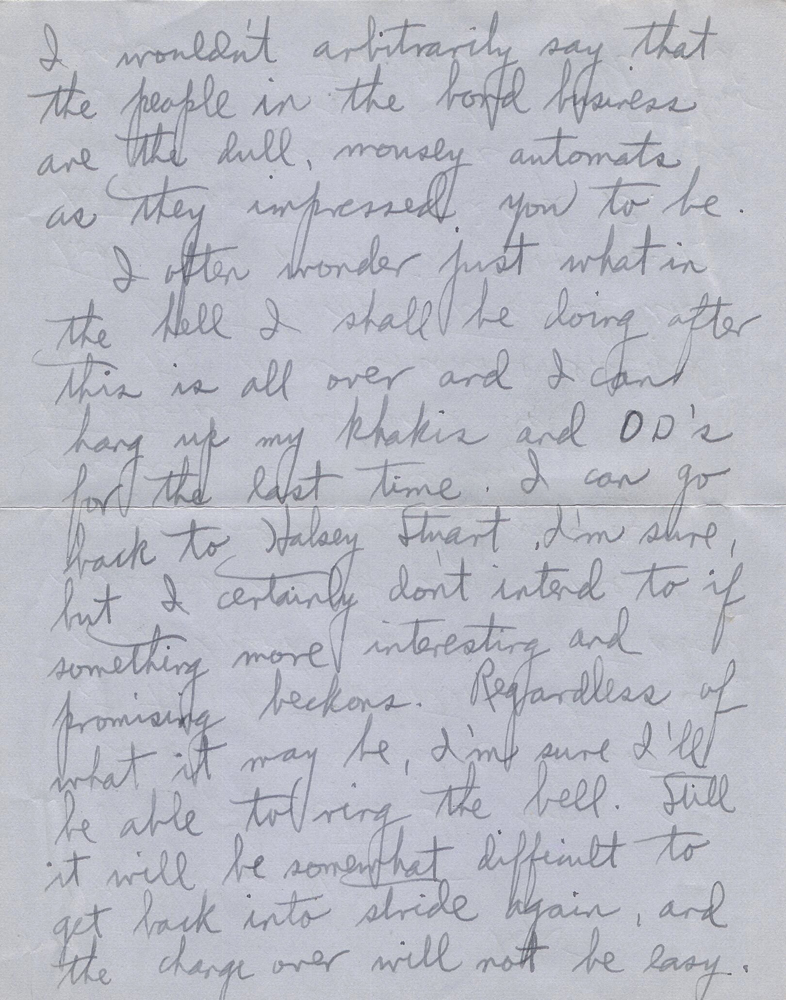 I wouldn't arbitrarily say that
the people in the bond business
are the dull, mousey automats
as they impressed you to be.
I often wonder just what in
the hell I shall be doing after
this is all over and I can
hang up my khakis and OD's
for the last time. I can go
back to Halsey Stuart, I'm sure,
but I certainly don't intend to if
something more interesting and
promising beckons. Regardless of
what it may be, I'm sure I'll
be able to ring the bell. Still
it will be somewhat difficult to
get back into stride again, and
the change over will not be easy.